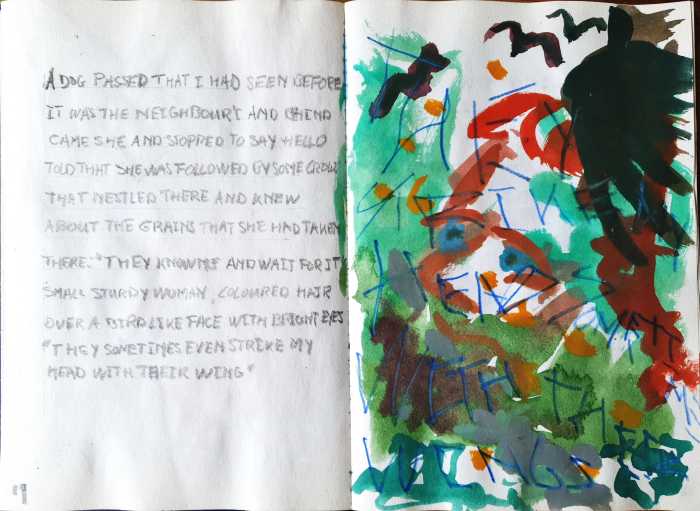 A DOG PASSED THAT I HAD SEEN BEFORE
IT WAS THE NEIGHBOUR'S AND BEHIND
CAME SHE AND STOPPED TO SAY HELLO
TOLD THAT SHE WAS FOLLOWED BY SOME CROWS
THAT NESTLED THERE AND KNEW
ABOUT THE GRAINS THAT SHE HAD TAKEN
THERE. "THEY KNOW ME AND WAIT FOR IT"
SMALL STURDY WOMAN, COLOURED HAIR
OVER A BIRDLIKE FACE WITH BRIGHT EYES
"THEY SOMETIMES EVEN STRIKE MY
HEAD WITH THEIR WING"
19
THEY
HEADS
WITH THEIR
WINGS